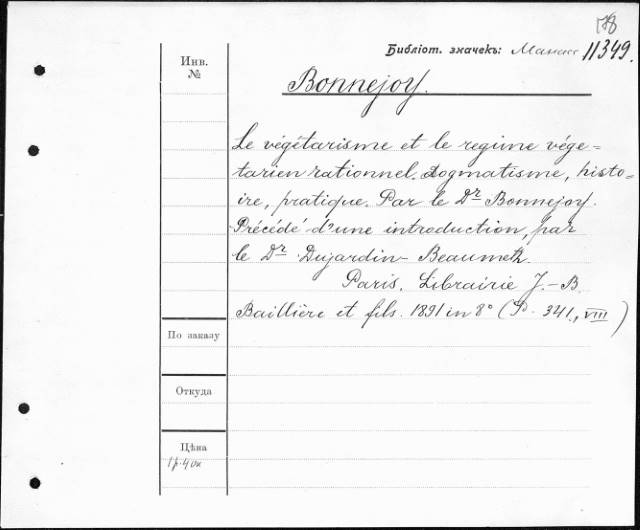 178
Библіот. значекъ: Манасс 11349.
Инв.
№
Bonnejoy.
Le végétarisme et le regime vége=
tarien rationnel. Dogmatisme, histo=
ire, pratique. Par le Dr Bonnejoy.
Précédé d'une introduction, par
le Dr Dujardin-Beaumetz.
Paris. Librairie J.-B.
Baillière et fils. 1891 in 8° (P. 341., VIII)
По заказу
Откуда
Цѣна
1 р. 40к